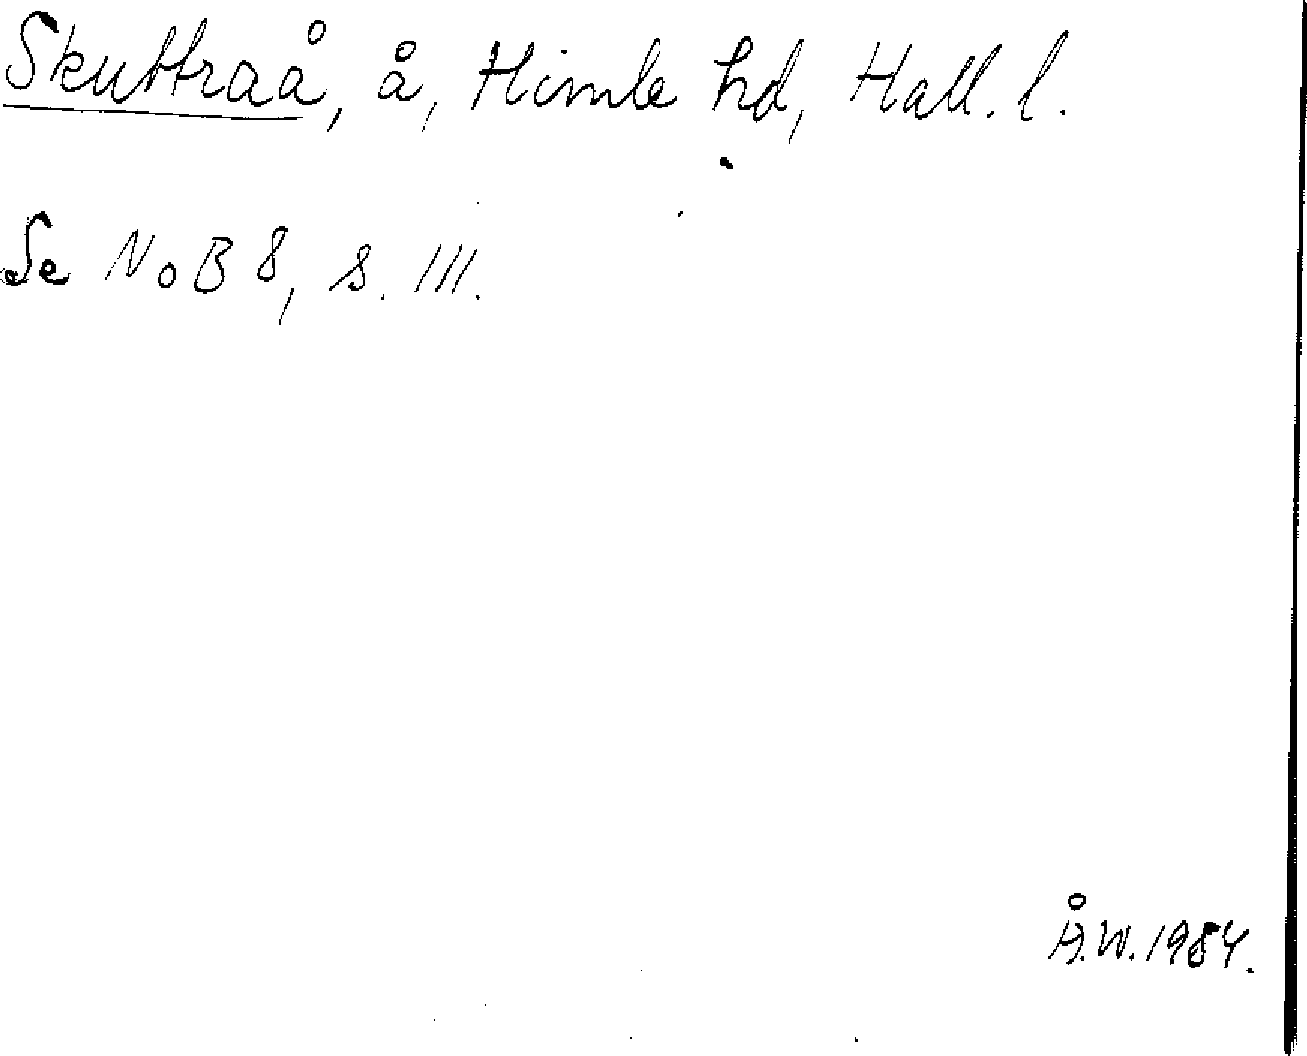 Skuttraå, å, Himle hd, Hall. l.
Se NoB 8, s. 111.
Å.W. 1984.